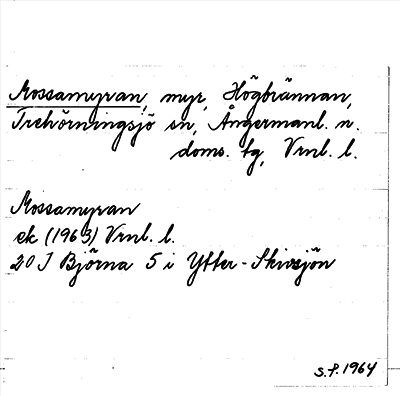 Mossamyran, myr, Högbrännan,
Trehörningsjö sn, Ångermanl. n.
doms. tg, Vrnl. l.
Mossamyran
ek (1963) Vrnl. l.
20 J Björna 5 i Ytter-Skivsjön
s.f. 1964